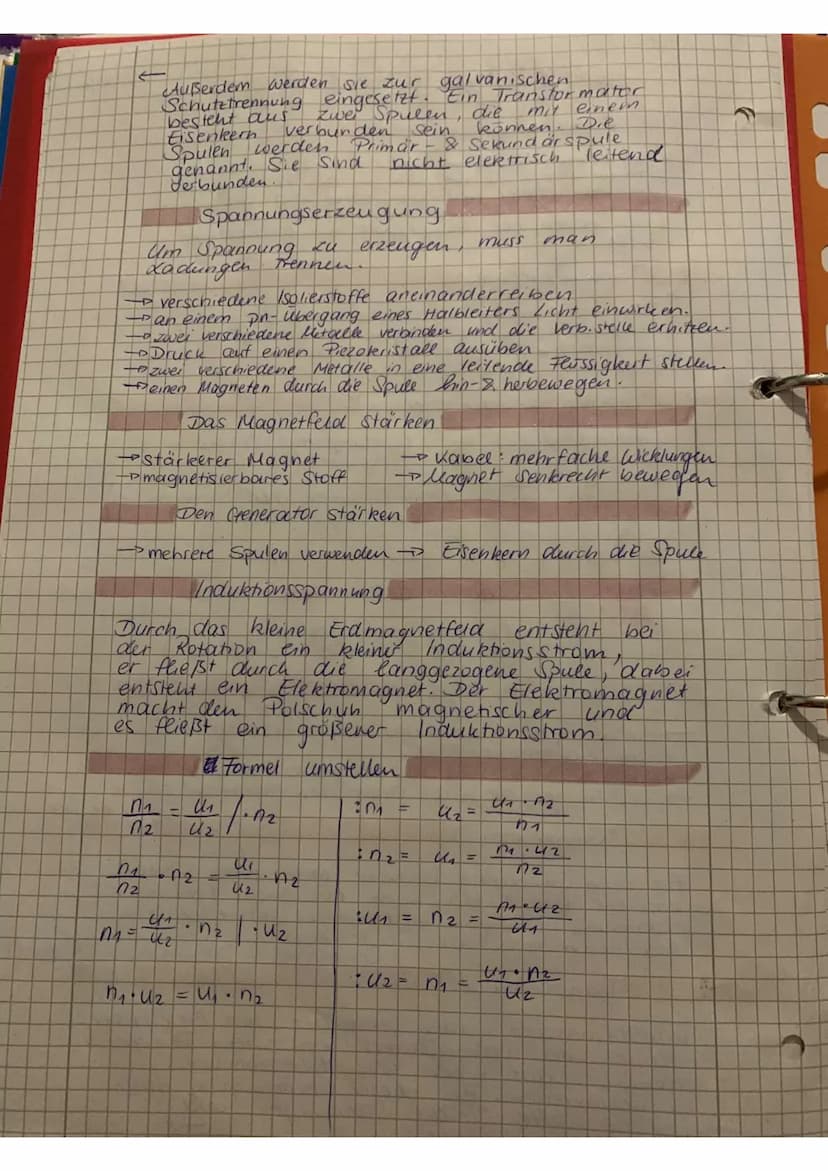 ←
Außerdem werden sie zur galvanischen
Schutztrennung eingesetzt. Ein Transformator
besteht aus zwei Spulen, die mit einem
Eisenkern verbunden sein können. Die
Spulen werden Primär- & Sekundärspule
genannt. Sie sind nicht elektrisch leitend
verbunden.
Spannungserzeugung
Um Spannung zu erzeugen, muss man
Ladungen trennen.
→ verschiedene Isolierstoffe aneinanderreiben
→ an einem pn-übergang eines Halbleiters Licht einwirken.
→ zwei verschiedene Metalle verbinden und die Verb.stelle erhitzen.
→ Druck auf einen Piezokristall ausüben
→ zwei verschiedene Metalle in eine leitende Flüssigkeit stellen
→ einen Magneten durch die Spule hin- & herbewegen.
Das Magnetfeld stärken
→ stärkerer Magnet → Kabel: mehrfache Wicklungen
→ magnetisierbares Stoff → Magnet senkrecht bewegen
Den Generator stärken
→ mehrere Spulen verwenden → Eisenkern durch die Spule
Induktionsspannung
Durch das kleine Erdmagnetfeld entsteht bei
der Rotation ein kleiner Induktionsstrom,
er fließt durch die langgezogene Spule, dabei
entsteht ein Elektromagnet. Der Elektromagnet
macht den Polschuh magnetischer und
es fließt ein größerer Induktionsstrom.
Formel umstellen
n1/n2 = u1/u2 /·n2
n1/n2 · n2 = u1/u2 · n2
n1 = u1/u2 · n2 |·u2
n1·u2 = u1·n2
:n1 = u2 = u1·n2/n1
:n2 = u1 = n1·u2/n2
:u1 = n2 = n1·u2/u1
:u2 = n1 = u1·n2/u2